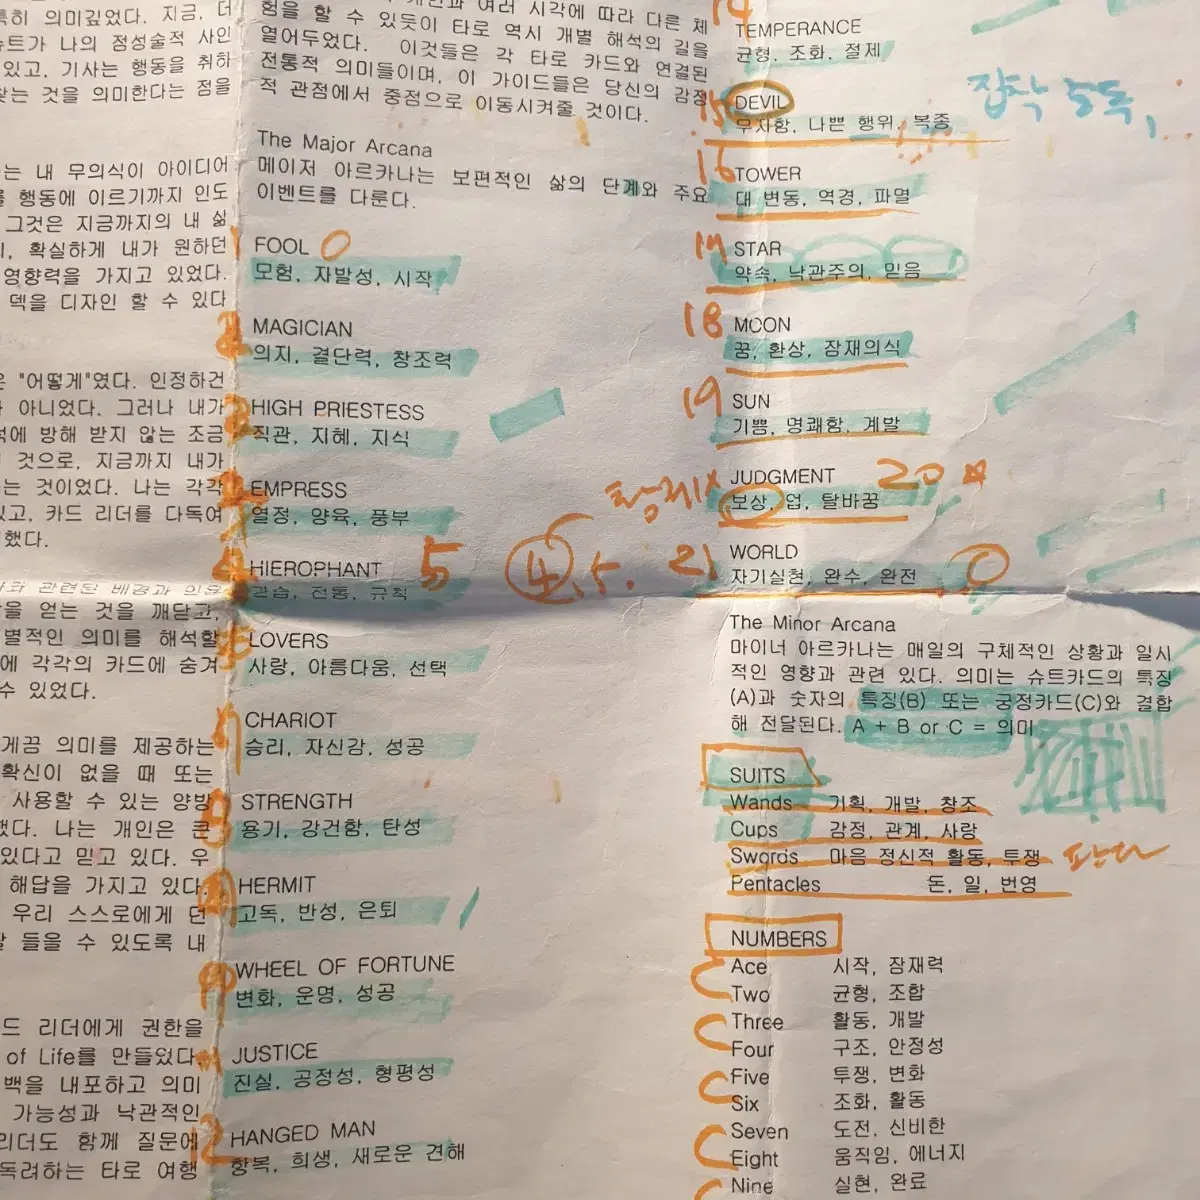 특히 의미깊었다. 지금, 더
슈트가 나의 점성술적 사인
있고, 기사는 행동을 취하
찾는 것을 의미한다는 점을
는 내 무의식이 아이디어
행동에 이르기까지 인도
그것은 지금까지의 내 삶
확실하게 내가 원하던
영향력을 가지고 있었다.
덱을 디자인 할 수 있다
은 "어떻게"였다. 인정하건
아니었다. 그러나 내가
에 방해 받지 않는 조금
것으로, 지금까지 내가
는 것이었다. 나는 각각
있고, 카드 리더를 다독여
했다.
관련된 배경과 의율
을 얻는 것을 깨닫고,
별적인 의미를 해석할
에 각각의 카드에 숨겨
수 있었다.
게끔 의미를 제공하는
확신이 없을 때 또는
사용할 수 있는 양방
했다. 나는 개인은 큰
있다고 믿고 있다. 우
해답을 가지고 있다.
우리 스스로에게 던
들을 수 있도록 내
드 리더에게 권한을
of Life를 만들었다.
백을 내포하고 의미
가능성과 낙관적인
리더도 함께 질문에
독려하는 타로 여행
여러 시각에 따라 다른 체
험을 할 수 있듯이 타로 역시 개별 해석의 길을
열어두었다. 이것들은 각 타로 카드와 연결된
전통적 의미들이며, 이 가이드들은 당신의 감정
적 관점에서 중점으로 이동시켜줄 것이다.
The Major Arcana
메이저 아르카나는 보편적인 삶의 단계와 주요
이벤트를 다룬다.
1 FOOL 0
모험, 자발성, 시작
MAGICIAN
의지, 결단력, 창조력
HIGH PRIESTESS
직관, 지혜, 지식
EMPRESS
열정, 양육, 풍부
HIEROPHANT 5 4. 5.
관습, 전통, 규칙
LOVERS
사랑, 아름다움, 선택
7 CHARIOT
승리, 자신감, 성공
8 STRENGTH
용기, 강건함, 탄성
HERMIT
고독, 반성, 은퇴
WHEEL OF FORTUNE
변화, 운명, 성공
11 JUSTICE
진실, 공정성, 형평성
12 HANGED MAN
항복, 희생, 새로운 견해
14 TEMPERANCE
균형, 조화, 절제
15 DEVIL 집착 중독,
무자함, 나쁜 행위, 복종
16 TOWER
대 변동, 역경, 파멸
17 STAR
약속, 낙관주의, 믿음
18 MOON
꿈, 환상, 잠재의식
19 SUN
기쁨, 명쾌함, 계발
JUDGMENT 20
보상, 업, 탈바꿈
21 WORLD 0
자기실현, 완수, 완전
The Minor Arcana
마이너 아르카나는 매일의 구체적인 상황과 일시
적인 영향과 관련 있다. 의미는 슈트카드의 특징
(A)과 숫자의 특징(B) 또는 궁정카드(C)와 결합
해 전달된다. A + B or C = 의미
SUITS
Wands 기획, 개발, 창조
Cups 감정, 관계, 사랑
Swords 마음 정신적 활동, 투쟁 판단
Pentacles 돈, 일, 번영
NUMBERS
Ace 시작, 잠재력
Two 균형, 조합
Three 활동, 개발
Four 구조, 안정성
Five 투쟁, 변화
Six 조화, 활동
Seven 도전, 신비한
Eight 움직임, 에너지
Nine 실현, 완료